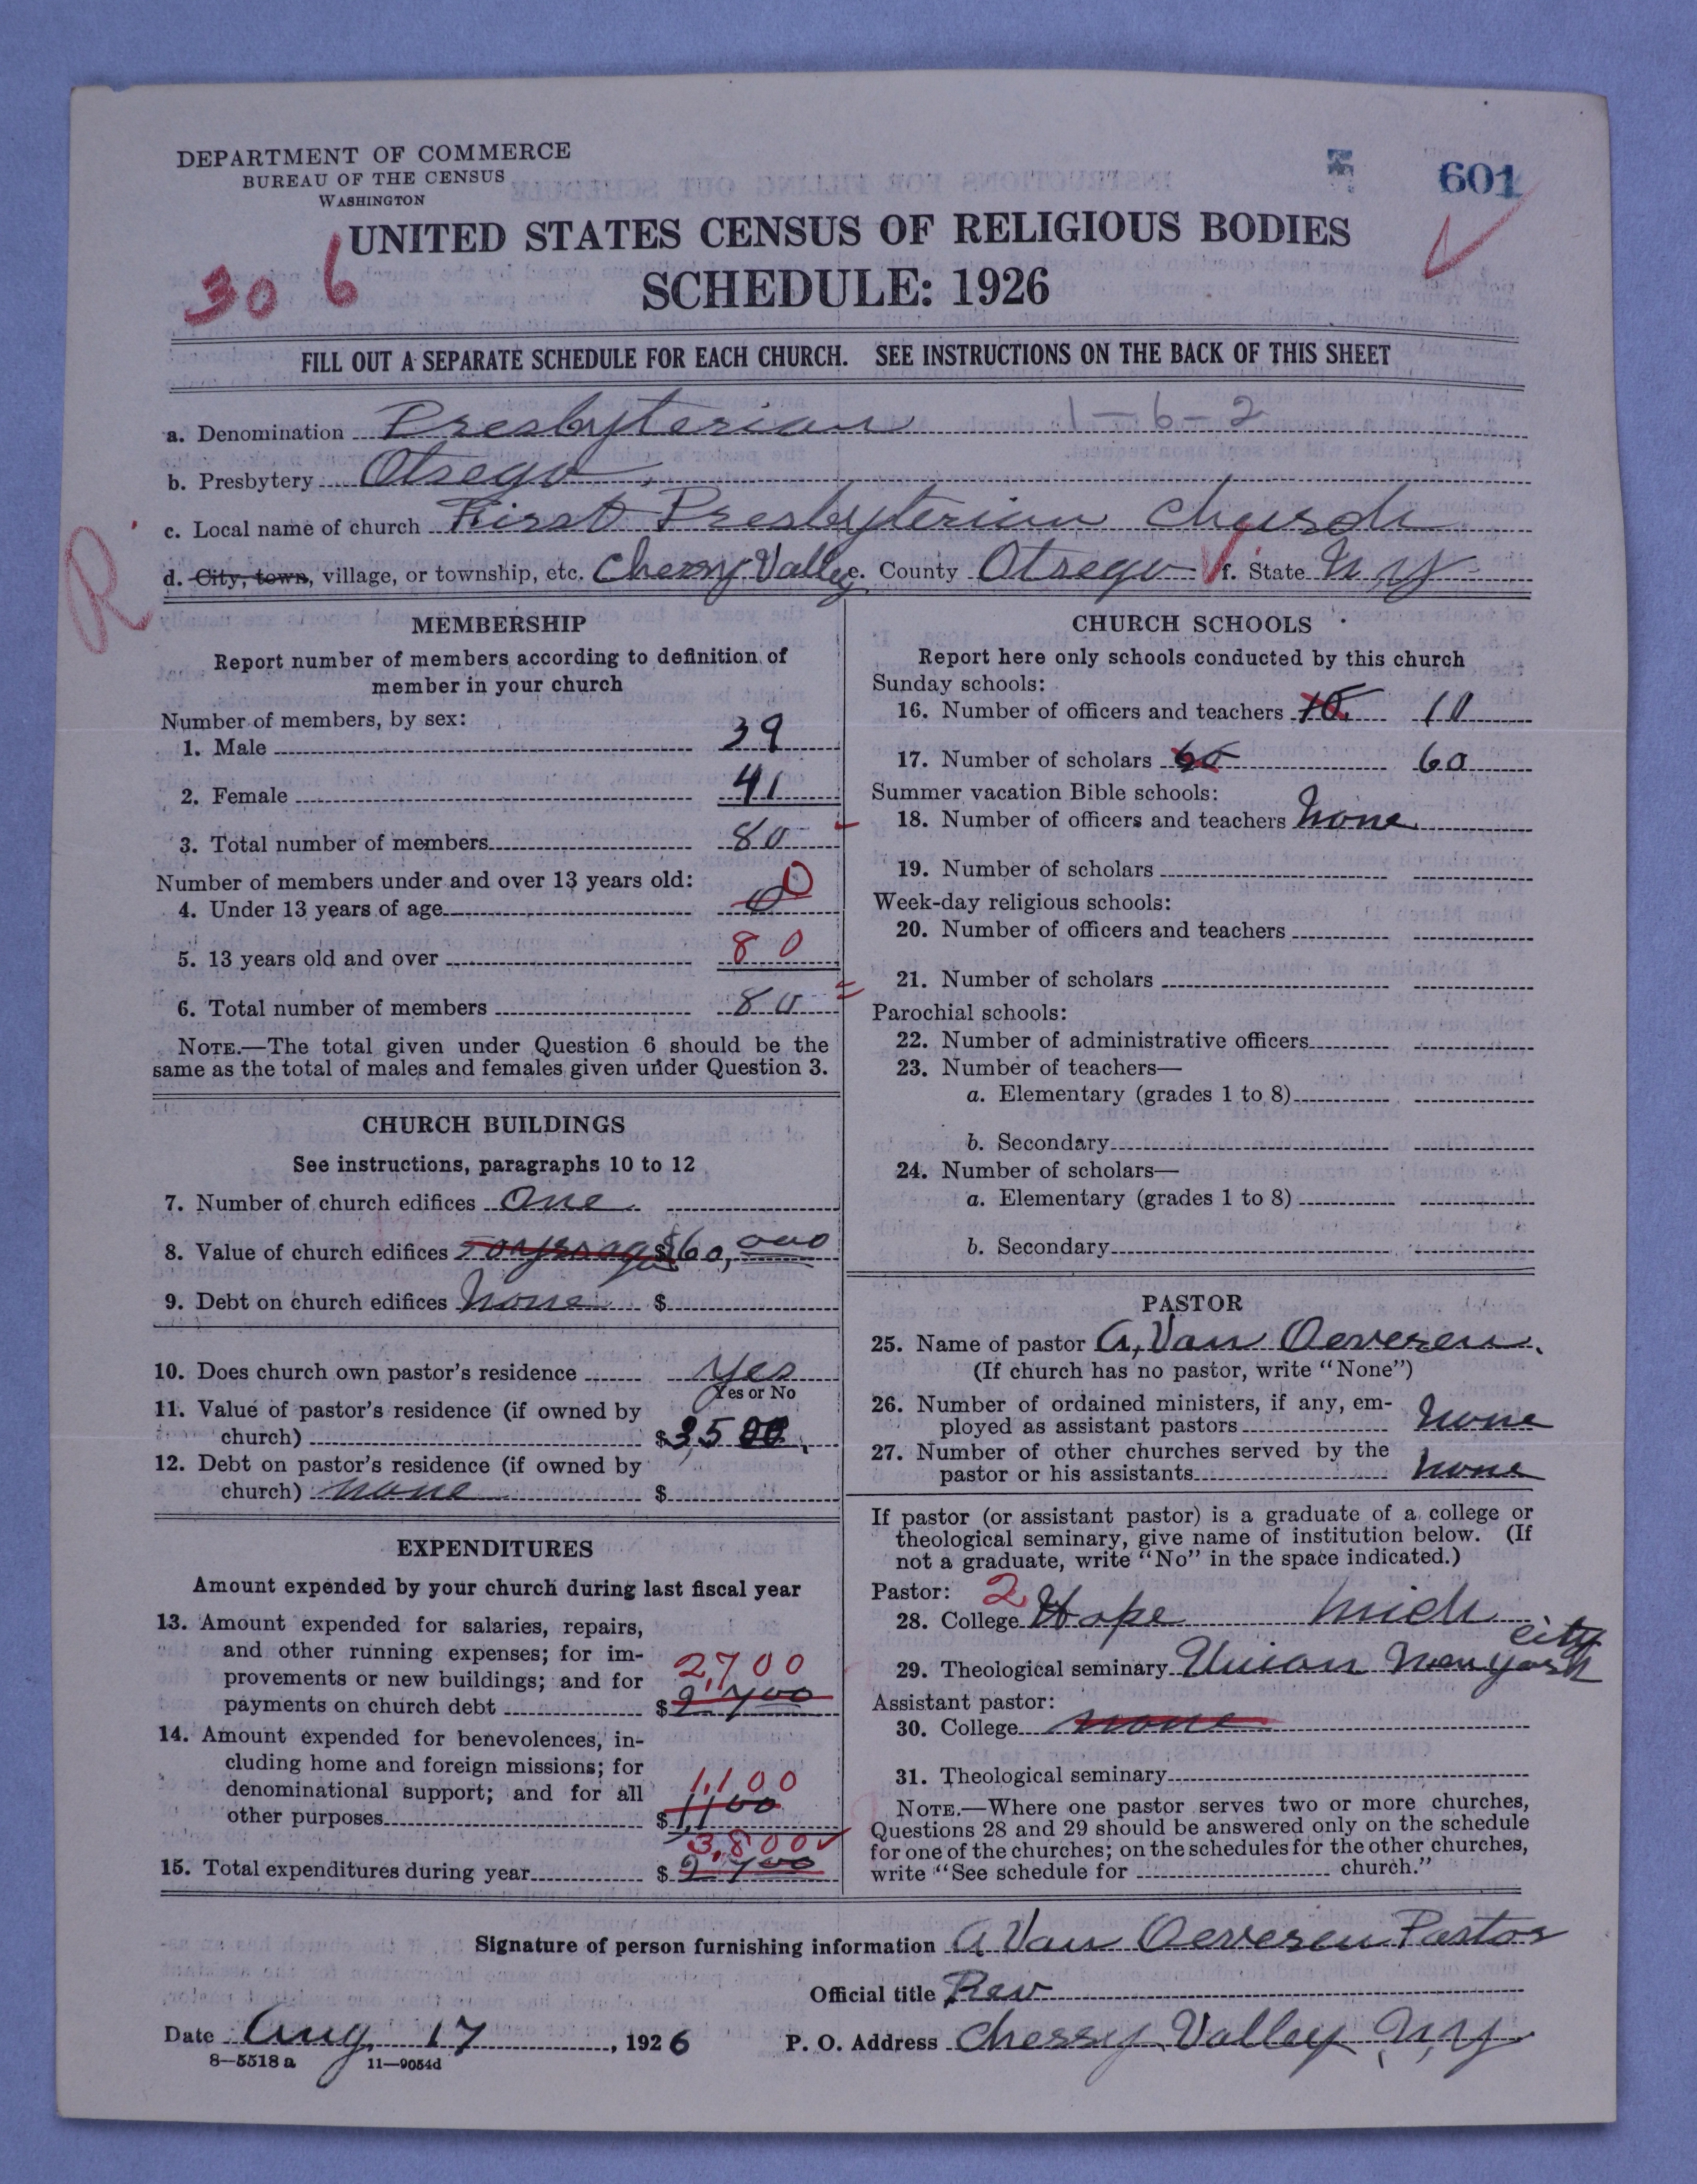 DEPARTMENT OF COMMERCE
BUREAU OF THE CENSUS
WASHINGTON
601
UNITED STATES CENSUS OF RELIGIOUS BODIES
306
SCHEDULE: 1926
FILL OUT A SEPARATE SCHEDULE FOR EACH CHURCH. SEE INSTRUCTIONS ON THE BACK OF THIS SHEET
a. Denomination Presbyterian 1-6-2
b. Presbytery Otsego
c. Local name of church First Presbyterian Church
R
d. City, town, village, or township, etc. Cherry Valley e. County Otsego f. State N Y
MEMBERSHIP
Report number of members according to definition of
member in your church
Number of members, by sex:
1. Male 39
2. Female 41
3. Total number of members 80
Number of members under and over 13 years old:
4. Under 13 years of age 0 0
5. 13 years old and over 80
6. Total number of members 80
NOTE.—The total given under Question 6 should be the
same as the total of males and females given under Question 3.
CHURCH BUILDINGS
See instructions, paragraphs 10 to 12
7. Number of church edifices One
8. Value of church edifices $60,000
9. Debt on church edifices None $
10. Does church own pastor's residence Yes
Yes or No
11. Value of pastor's residence (if owned by
church) $3,500.
12. Debt on pastor's residence (if owned by
church) none $
EXPENDITURES
Amount expended by your church during last fiscal year
13. Amount expended for salaries, repairs,
and other running expenses; for im-
provements or new buildings; and for 2,700
payments on church debt $2,700
14. Amount expended for benevolences, in-
cluding home and foreign missions; for
denominational support; and for all 1,100
other purposes $1,100
3,800
15. Total expenditures during year $2,700
CHURCH SCHOOLS
Report here only schools conducted by this church
Sunday schools:
16. Number of officers and teachers 10 10
17. Number of scholars 60
Summer vacation Bible schools:
18. Number of officers and teachers None
19. Number of scholars
Week-day religious schools:
20. Number of officers and teachers
21. Number of scholars
Parochial schools:
22. Number of administrative officers
23. Number of teachers—
a. Elementary (grades 1 to 8)
b. Secondary
24. Number of scholars—
a. Elementary (grades 1 to 8)
b. Secondary
PASTOR
25. Name of pastor A. Van Oeveren.
(If church has no pastor, write "None")
26. Number of ordained ministers, if any, em-
ployed as assistant pastors None
27. Number of other churches served by the
pastor or his assistants none
If pastor (or assistant pastor) is a graduate of a college or
theological seminary, give name of institution below. (If
not a graduate, write "No" in the space indicated.)
Pastor: 2
28. College Hope Mich
29. Theological seminary Union New York city
Assistant pastor:
30. College none
31. Theological seminary
NOTE.—Where one pastor serves two or more churches,
Questions 28 and 29 should be answered only on the schedule
for one of the churches; on the schedules for the other churches,
write "See schedule for church."
Signature of person furnishing information A Van Oeveren Pastor
Official title Rev
Date Aug 17, 1926 P. O. Address Cherry Valley N, Y
8—5518 a 11—9054d